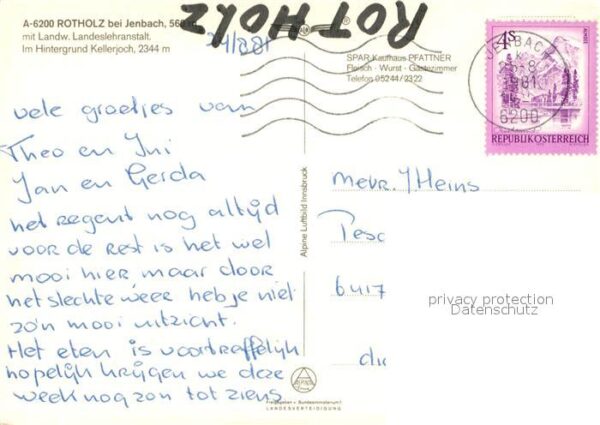 A-6200 ROTHOLZ bei Jenbach, 560 m
mit Landw. Landeslehranstalt.
Im Hintergrund Kellerjoch, 2344 m
ROTHOLZ
SPAR Kaufhaus PFATTNER
Fleisch · Wurst · Gästezimmer
Telefon 05244/2322
4S
JENBACH
6200
REPUBLIK ÖSTERREICH
vele groetjes van
Theo en Ini
Jan en Gerda
het regent nog altijd
voor de rest is het wel
mooi hier maar door
het slechte weer heb je niet
zo'n mooi uitzicht.
Het eten is voortreffelijk
hopelijk krijgen we deze
week nog zon tot ziens
Alpine Luftbild Innsbruck
mevr. J Heins
Pesc
6417
die
privacy protection
Datenschutz
Freigegeben v. Bundesministerium f.
LANDESVERTEIDIGUNG